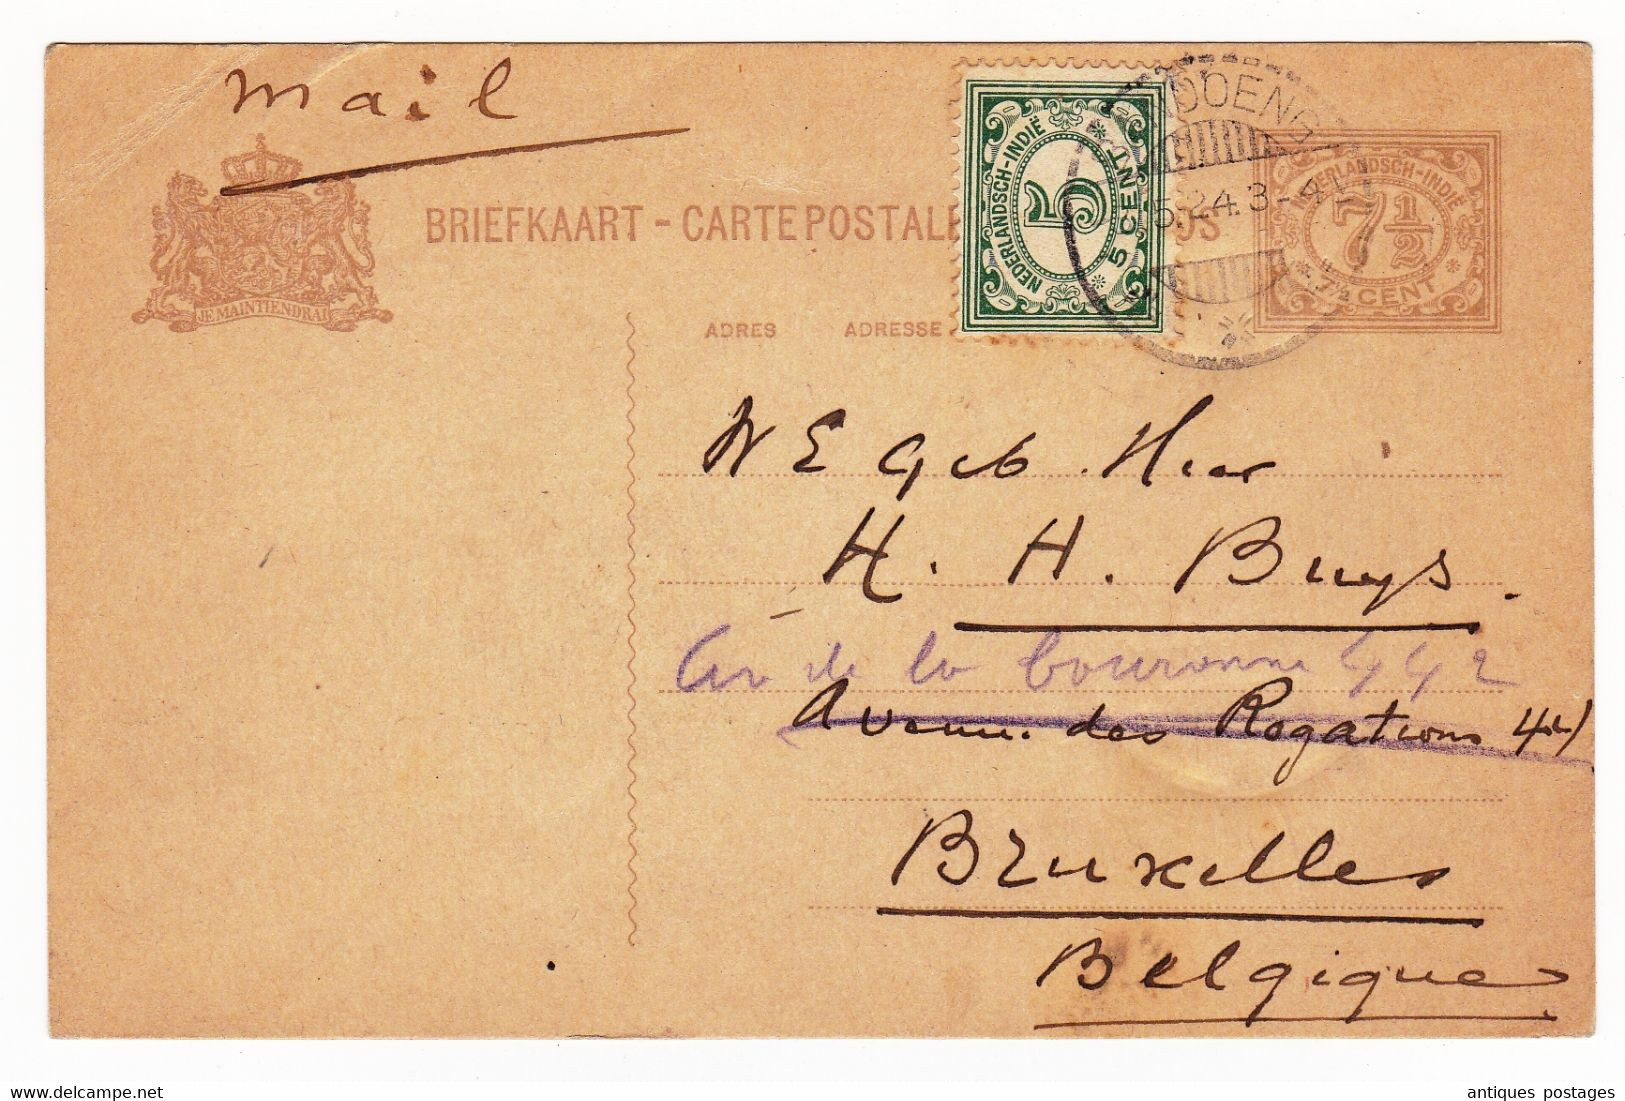 mail
JE MAINTIENDRAI
BRIEFKAART - CARTE POSTALE
ADRES ADRESSE
NEDERLANDSCH-INDIË
5
5 CENT
DOENG
5.24.3-4
NEDERLANDSCH-INDIË
7½
7½ CENT
W E Geb. Heer
H. H. Buys.
Av de la Couronne 442
Avenue des Rogations
Bruxelles
Belgique
delcampe.net
antiques postages